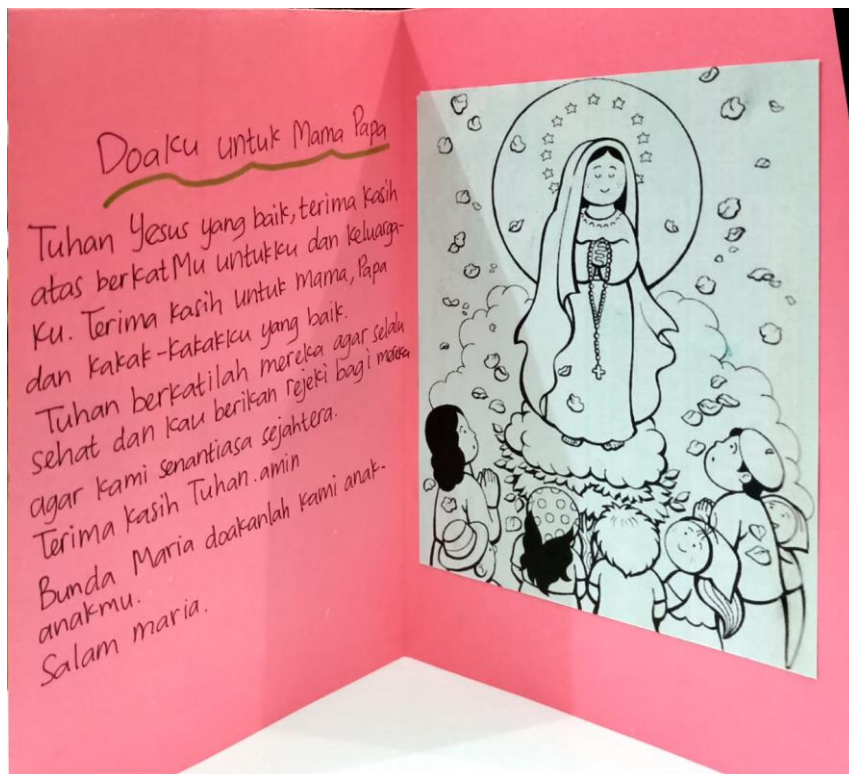 Doaku untuk Mama Papa
Tuhan Yesus yang baik, terima kasih
atas berkatMu untukku dan keluarga-
ku. Terima kasih untuk Mama, Papa
dan kakak-kakakku yang baik.
Tuhan berkatilah mereka agar selalu
sehat dan kau berikan rejeki bagi mereka
agar kami senantiasa sejahtera.
Terima kasih Tuhan. amin
Bunda Maria doakanlah kami anak-
anakmu.
Salam maria.